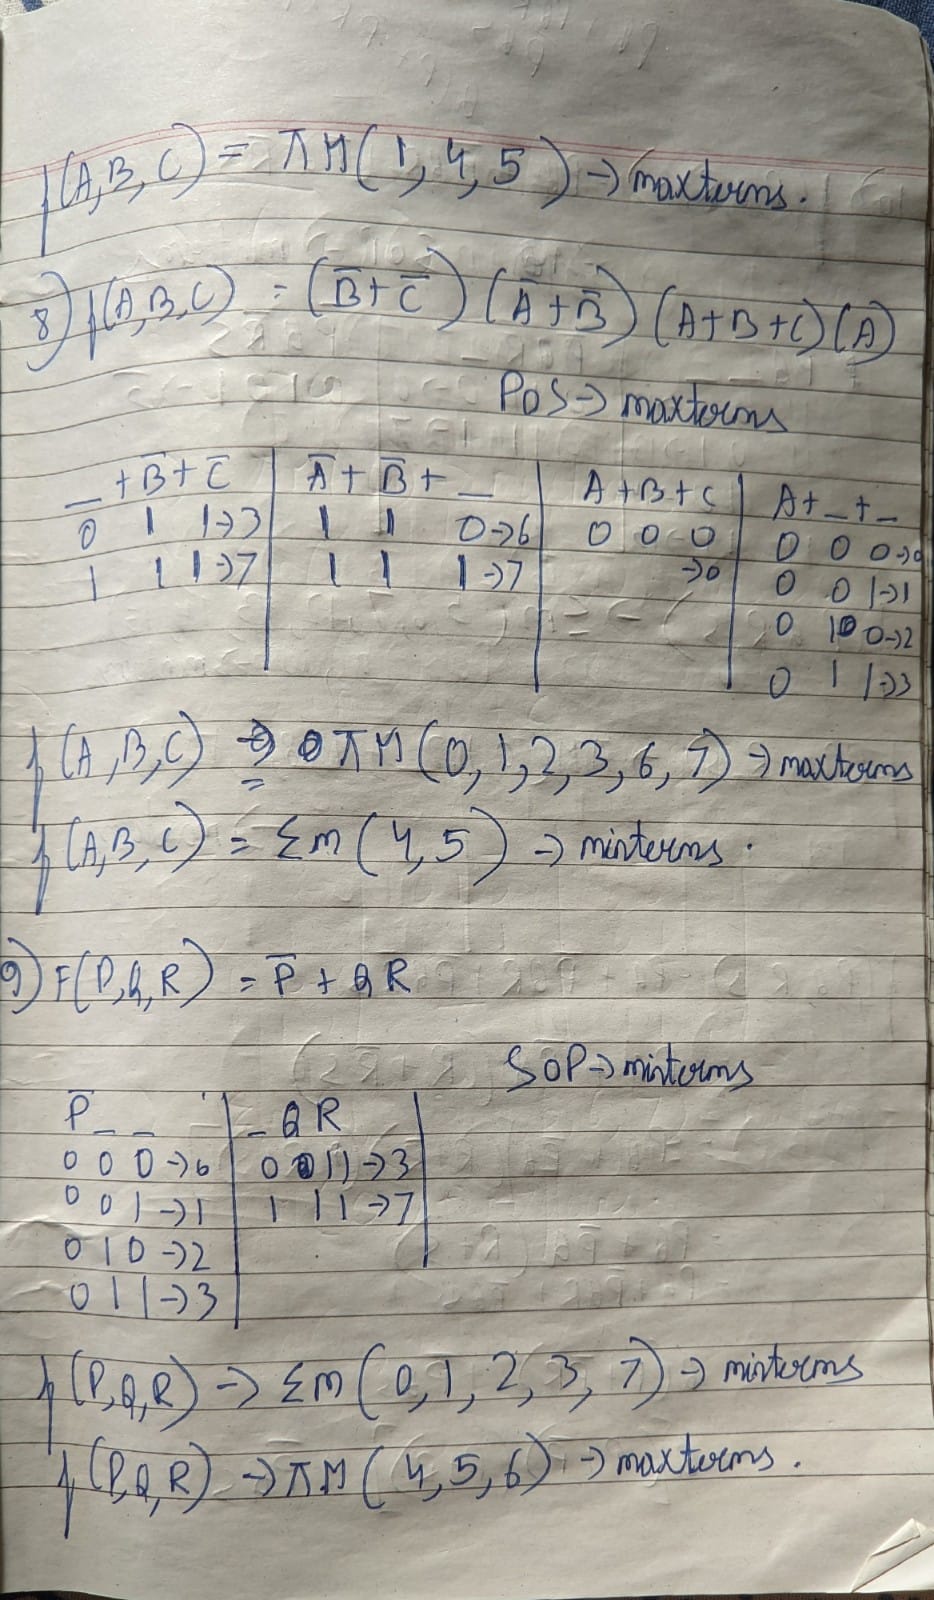 f(A,B,C) = πM(1,4,5) → maxterms.
8) f(A,B,C) = (B̅+C̅)(A̅+B̅)(A+B+C)(A)
POS → maxterms
_+B̅+C̅ | A̅+B̅+_ | A+B+C | A+_+_
0 1 1→3 | 1 1 0→6 | 0 0 0 | 0 0 0→0
1 1 1→7 | 1 1 1→7 | →0 | 0 0 1→1
0 1 0→2
0 1 1→3
f(A,B,C) = πM(0,1,2,3,6,7) → maxterms
f(A,B,C) = Σm(4,5) → minterms.
9) F(P,Q,R) = P̅ + QR
SOP → minterms
P̅ _ _ | _ Q R
0 0 0→0 | 0 1 1→3
0 0 1→1 | 1 1 1→7
0 1 0→2
0 1 1→3
f(P,Q,R) → Σm(0,1,2,3,7) → minterms
f(P,Q,R) → πM(4,5,6) → maxterms.